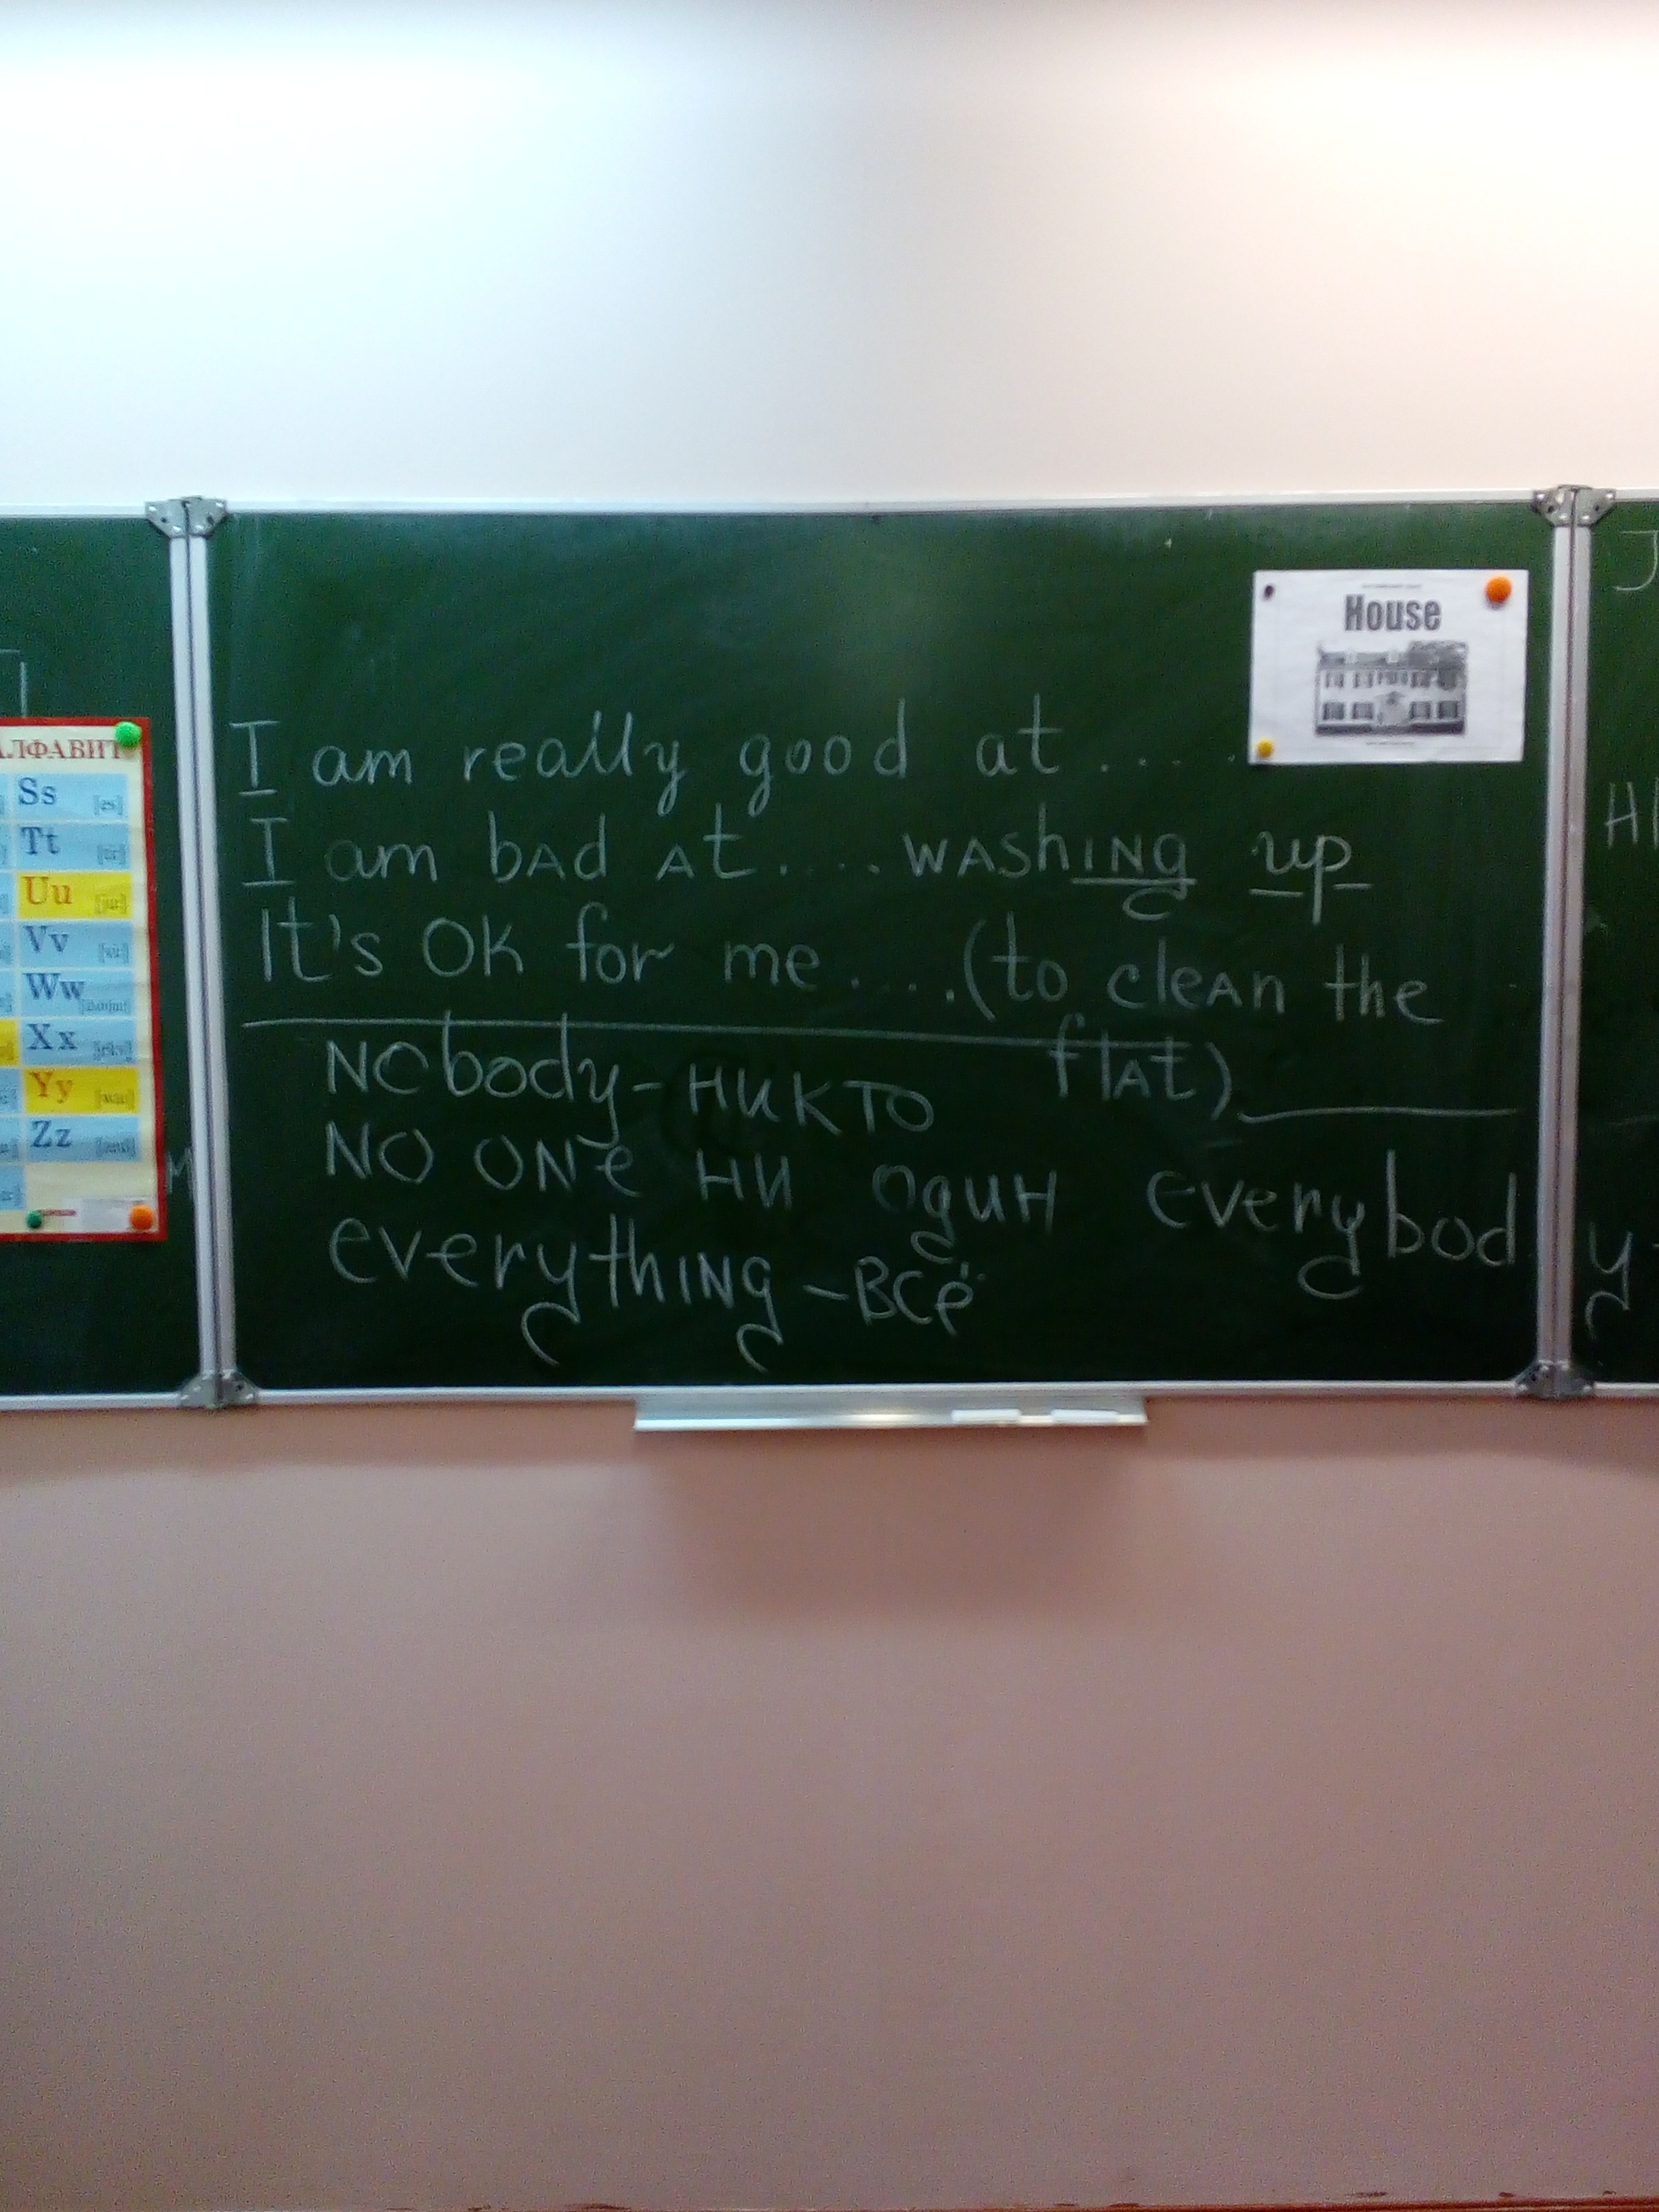 House
I am really good at .....
I am bad at .... washing up
It's OK for me ....(to clean the
flat)
Nobody - никто
No one ни один everybody -
everything - всё
АЛФАВИТ
Ss [es]
Tt
Uu
Vv
Ww
Xx
Yy
Zz